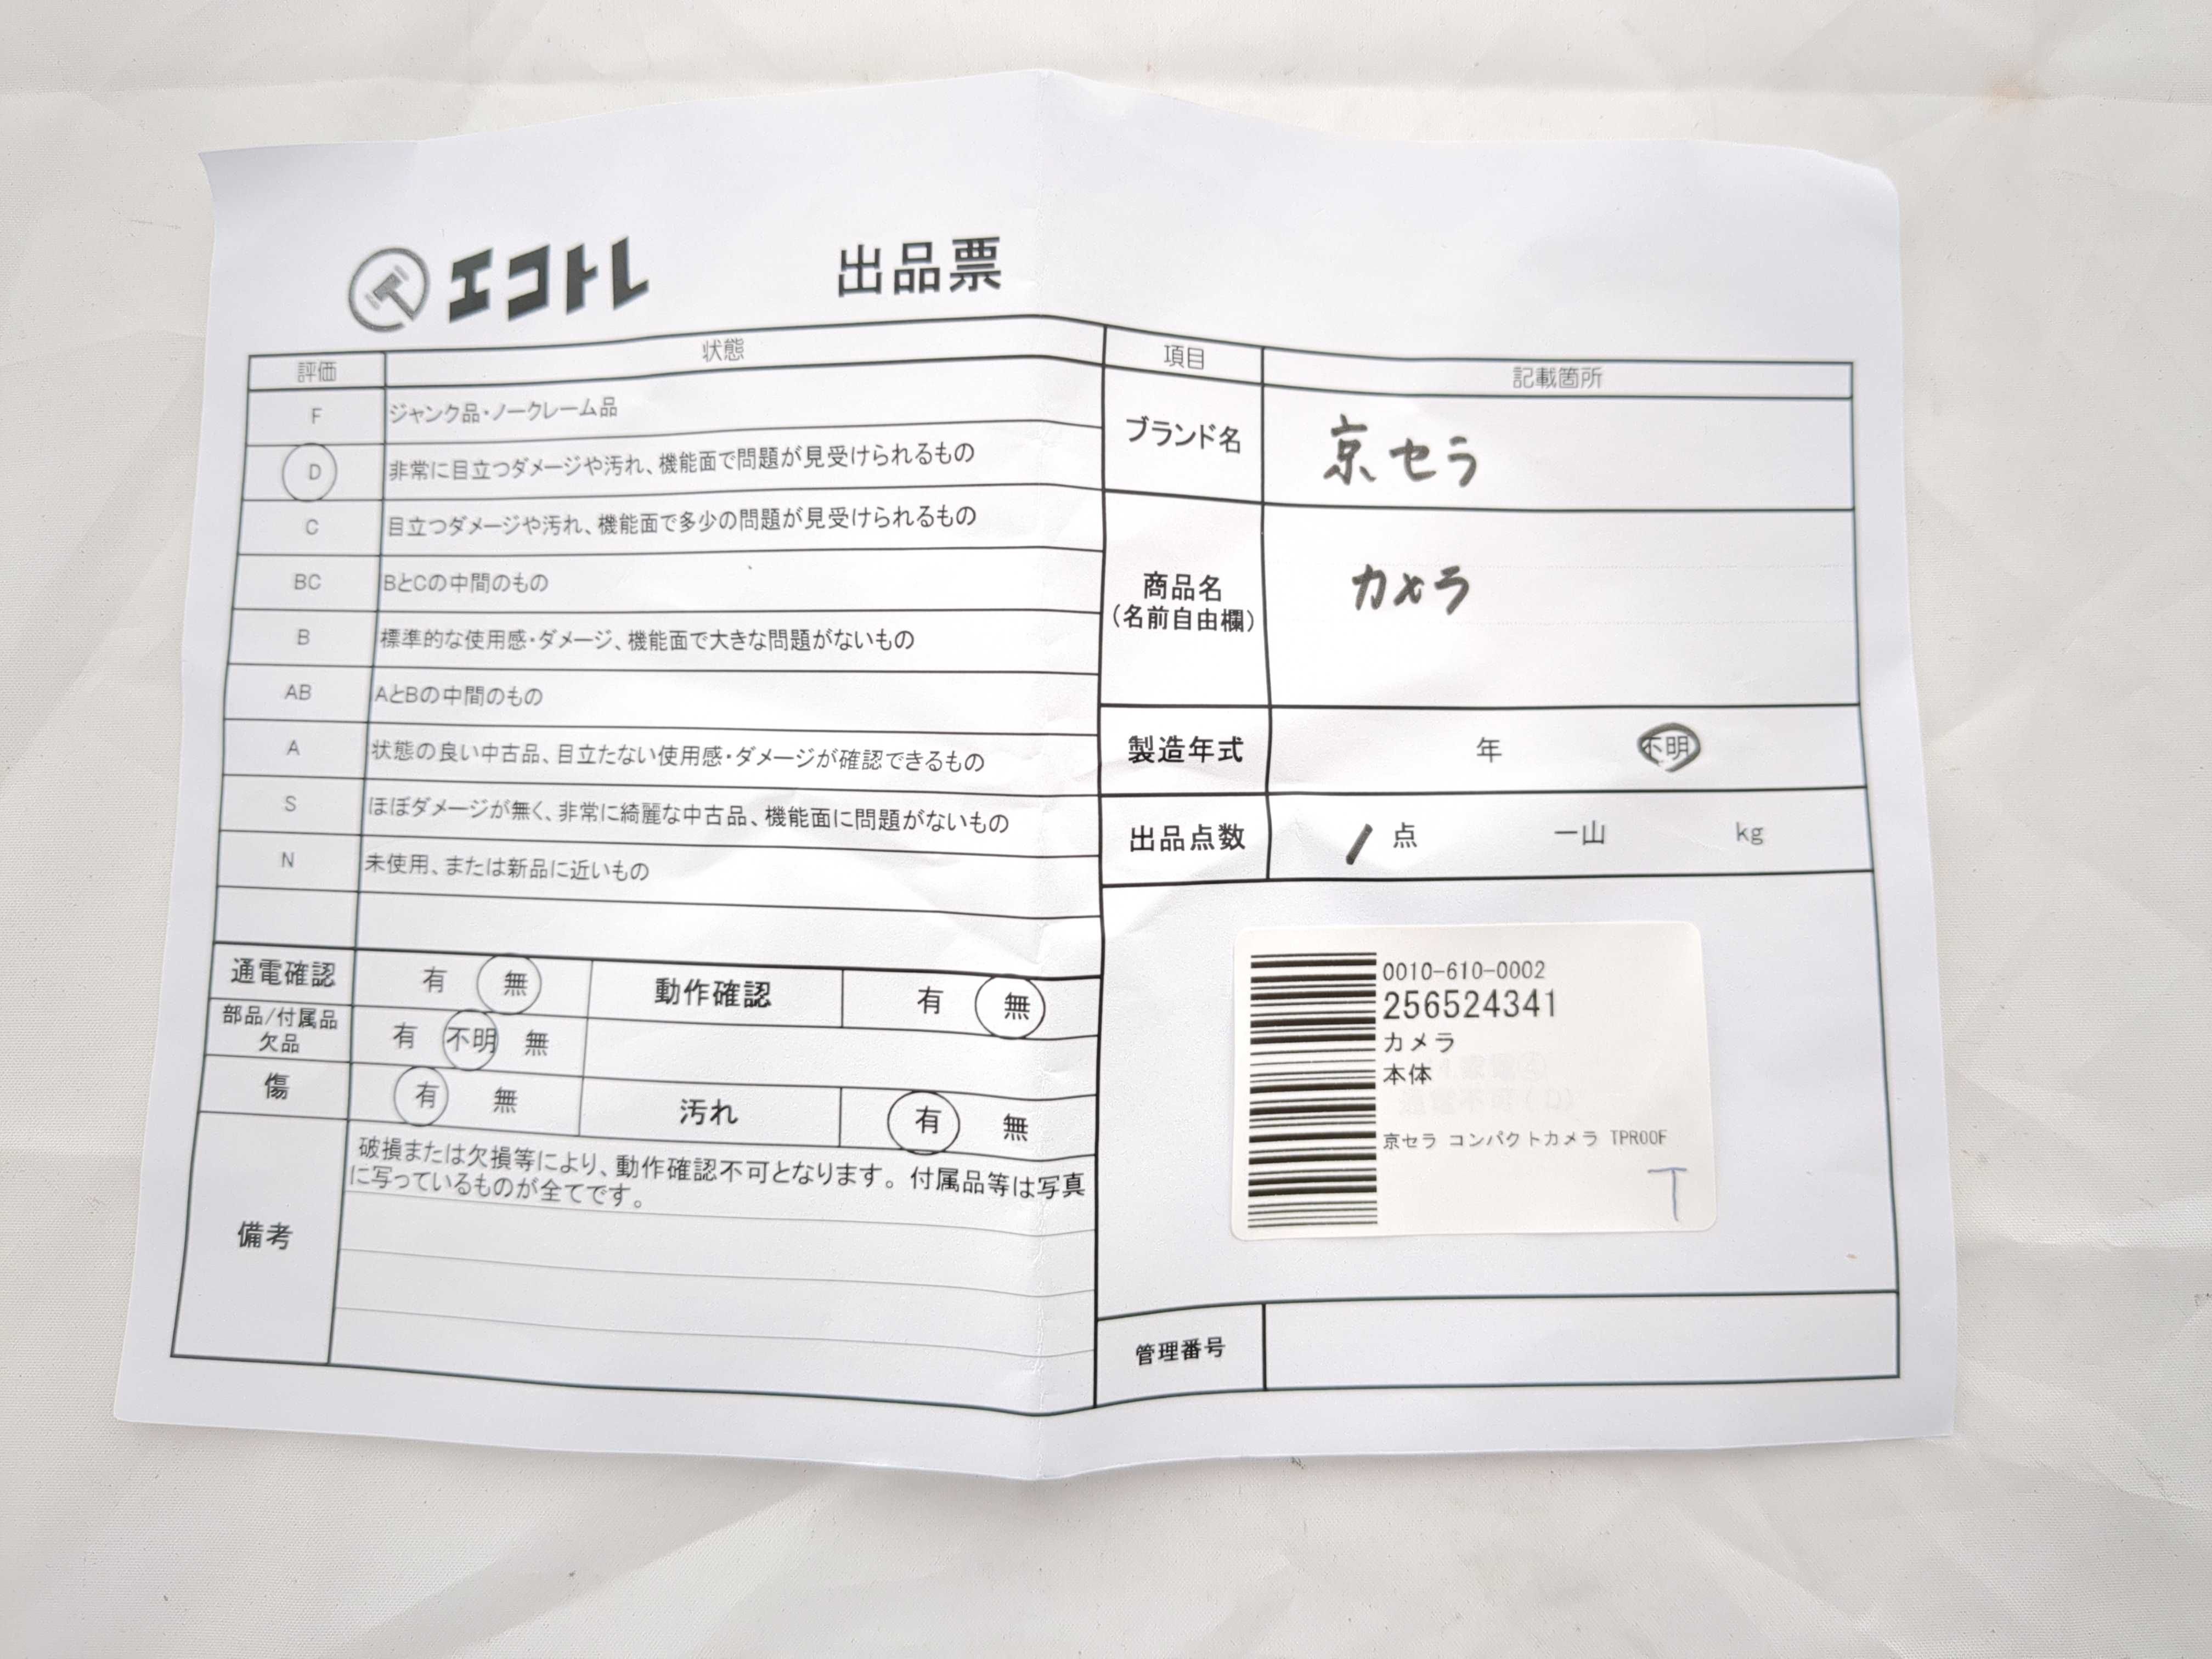 エコトレ 出品票
評価 状態
F ジャンク品・ノークレーム品
D 非常に目立つダメージや汚れ、機能面で問題が見受けられるもの
C 目立つダメージや汚れ、機能面で多少の問題が見受けられるもの
BC BとCの中間のもの
B 標準的な使用感・ダメージ、機能面で大きな問題がないもの
AB AとBの中間のもの
A 状態の良い中古品、目立たない使用感・ダメージが確認できるもの
S ほぼダメージが無く、非常に綺麗な中古品、機能面に問題がないもの
N 未使用、または新品に近いもの
通電確認 有 無 動作確認 有 無
部品/付属品
欠品
有 不明 無
傷 有 無 汚れ 有 無
備考
破損または欠損等により、動作確認不可となります。付属品等は写真
に写っているものが全てです。
項目 記載箇所
ブランド名 京セラ
商品名
(名前自由欄)
カメラ
製造年式 年 不明
出品点数 1 点 一山 kg
0010-610-0002
256524341
カメラ
本体
京セラ コンパクトカメラ TPR00F
T
管理番号